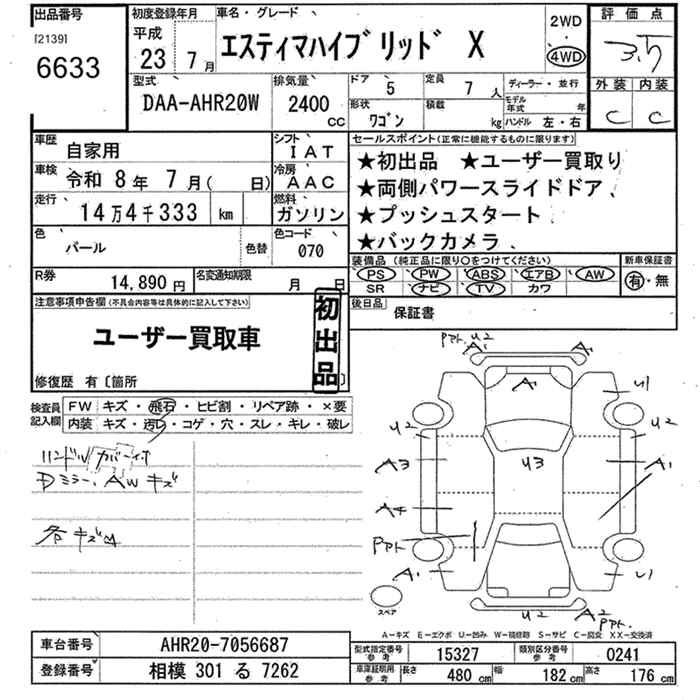 出品番号 初度登録年月 車名・グレード 2WD 評価点
[2139] 平成 エスティマハイブリッド X 4WD 3.5
6633 23年 7月
型式 排気量 ドア 定員 ディーラー・並行 外装 内装
DAA-AHR20W 2400 CC 5 7人 モデル年式 年 C C
形状 ワゴン 積載 kg ハンドル 左・右
車歴 自家用 シフト IAT
車検 令和 8年 7月(日) 冷房 AAC
走行 14万4千333 km 燃料 ガソリン
色 パール 色替 色コード 070
R券 14,890円 名変通知期限 月 日
セールスポイント(正常に機能するものに限ります)
★初出品 ★ユーザー買取り
★両側パワースライドドア、
★プッシュスタート、
★バックカメラ、
装備品(純正品に限り○をつけてください) 新車保証書
PS PW ABS エアB AW 有・無
SR ナビ TV カワ
後日品 保証書
注意事項申告欄(不具合内容等は具体的に記入して下さい)
ユーザー買取車
初出品
修復歴 有〔箇所 〕
検査員記入欄 FW キズ・飛石・ヒビ割・リペア跡・×要
内装 キズ・汚レ・コゲ・穴・スレ・キレ・破レ
ハンドルカバー付
Dミラー、AWキズ
各キズ凹
U2 A1 A1
A1 U1
U2 U2
A3 U3 A1
A4
A1 U1
スペア U2 A2
A-キズ E-エクボ U-凹み W-補修跡 S-サビ C-腐食 XX-交換済
車台番号 AHR20-7056687
登録番号 相模 301 る 7262
型式指定番号 参考 15327 類別区分番号 参考 0241
車庫証明用 参考 長さ 480cm 幅 182cm 高さ 176cm